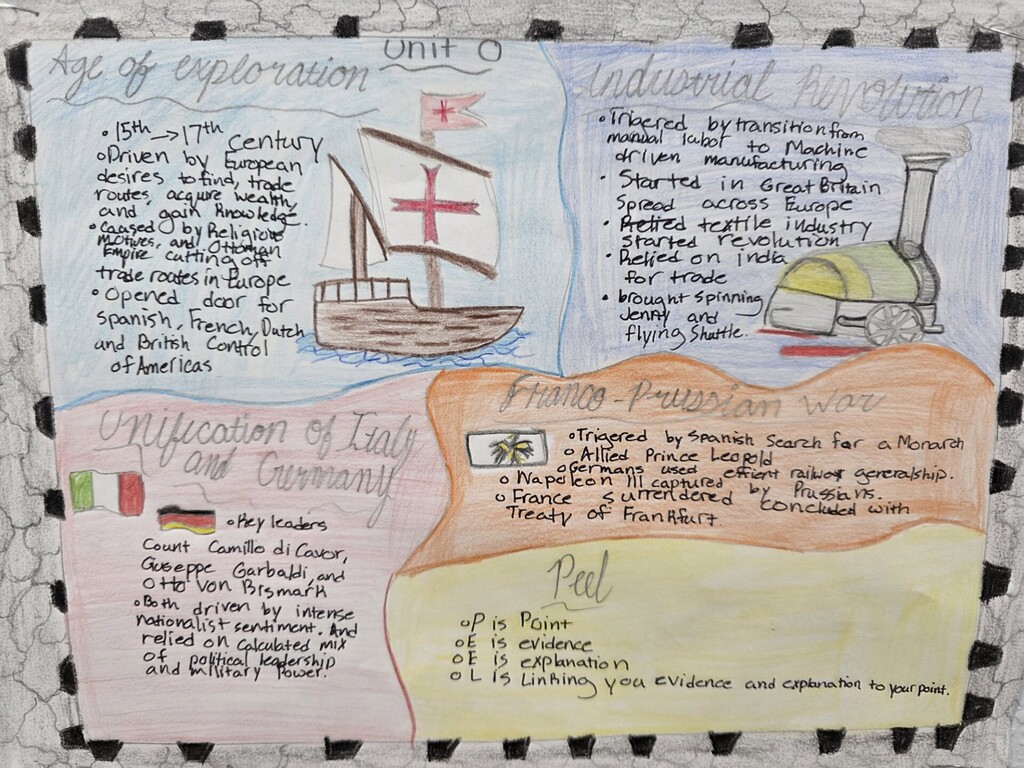 Unit 0
Age of exploration
• 15th → 17th century
• Driven by European
desires to find, trade
routes, acquire wealth,
and gain knowledge.
• caused by Religious
motives, and Ottoman
Empire cutting off
trade routes in Europe
• Opened door for
Spanish, French, Dutch
and British Control
of Americas
Industrial Revolution
• Trigered by transition from
manual labor to Machine
driven manufacturing
• Started in Great Britain
Spread across Europe
• textile industry
Started revolution
• Relied on india
for trade
• brought Spinning
Jenny and
flying Shuttle.
Unification of Italy
and Germany
• Key leaders
Count Camillo di Cavor,
Guseppe Garbaldi, and
Otto von Bismark
• Both driven by intense
nationalist sentiment. And
relied on calculated mix
of political leadership
and military Power.
Franco-Prussian War
• Trigered by Spanish Search for a Monarch
• Allied Prince Leopold
• Germans used effient railway generalship.
• Napoleon III captured by Prussians.
• France surrendered concluded with
Treaty of Frankfurt
Peel
• P is Point
• E is evidence
• E is explanation
• L is Linking you evidence and explanation to your point.